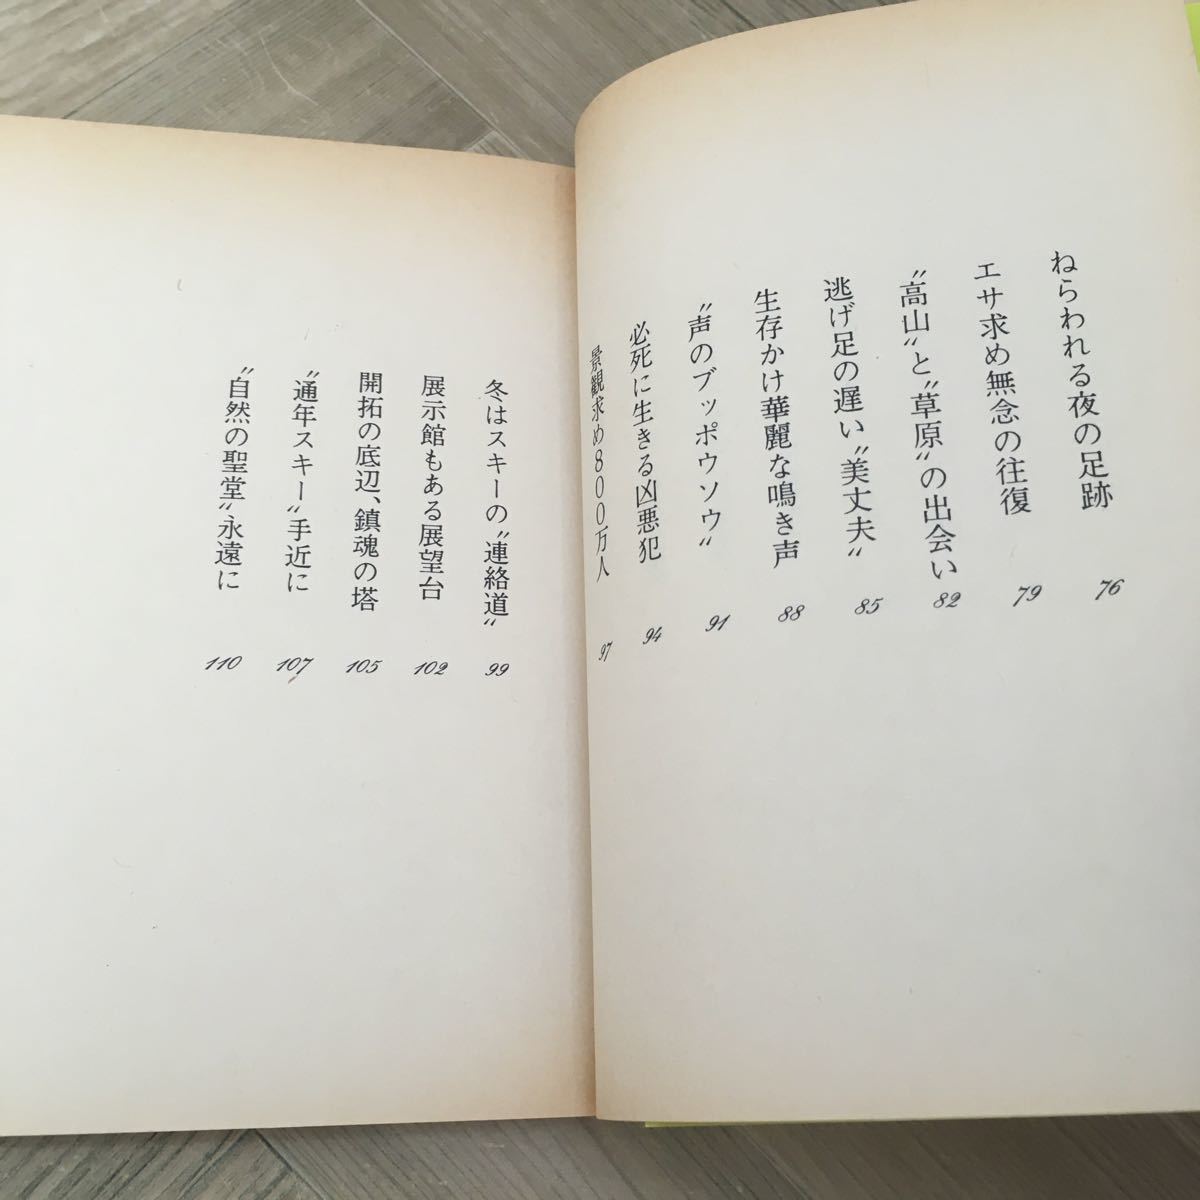 ねらわれる夜の足跡 76
エサ求め無念の往復 79
〝高山〟と〝草原〟の出会い 82
逃げ足の遅い〝美丈夫〟 85
生存かけ華麗な鳴き声 88
〝声のブッポウソウ〟 91
必死に生きる凶悪犯 94
景観求め800万人 97
冬はスキーの〝連絡道〟 99
展示館もある展望台 102
開拓の底辺、鎮魂の塔 105
〝通年スキー〟手近に 107
〝自然の聖堂〟永遠に 110